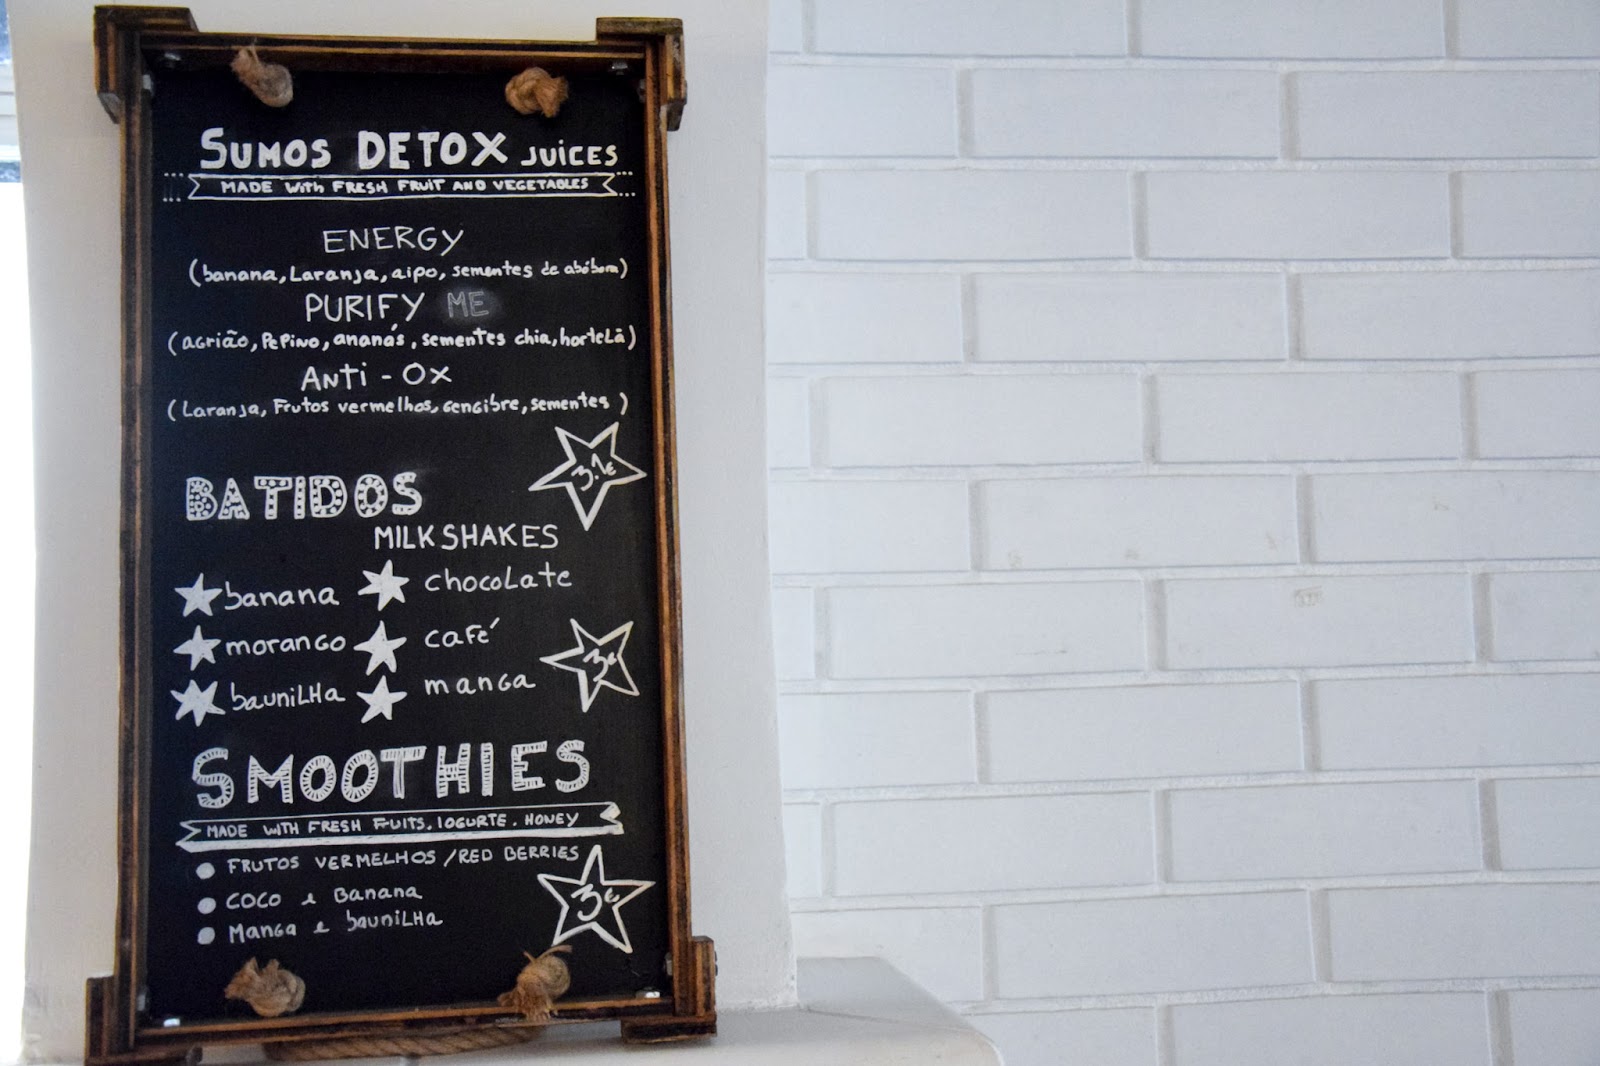 SUMOS DETOX JUICES
MADE WITH FRESH FRUIT AND VEGETABLES
ENERGY
(banana, Laranja, aipo, sementes de abóbora)
PURIFY ME
(agrião, Pepino, ananás, sementes chia, hortelã)
ANTI - OX
(Laranja, Frutos vermelhos, gengibre, sementes)
3.1€
BATIDOS
MILKSHAKES
banana chocolate
morango café
3€
baunilha manga
SMOOTHIES
MADE WITH FRESH FRUITS. IOGURTE. HONEY
FRUTOS VERMELHOS / RED BERRIES
COCO e Banana
3€
Manga e baunilha